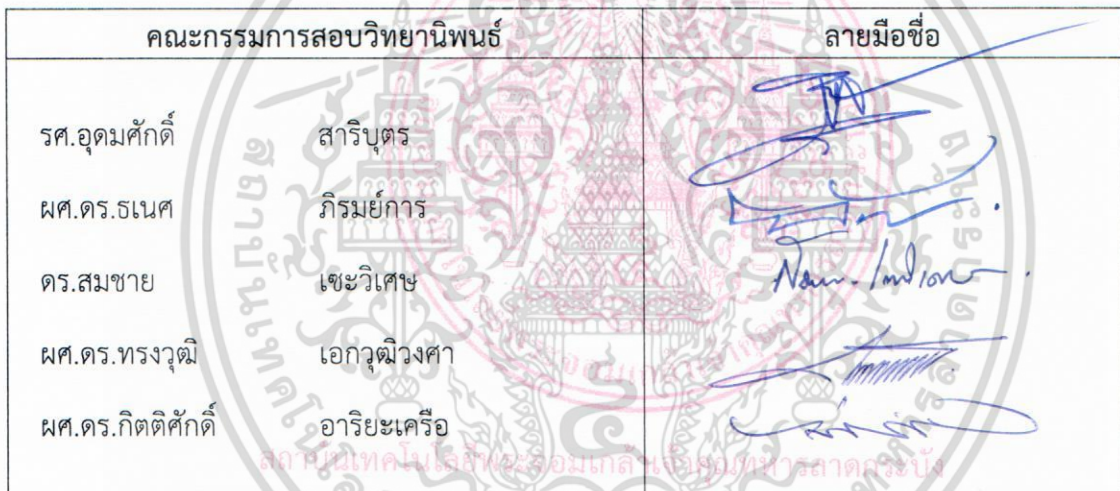 คณะกรรมการสอบวิทยานิพนธ์ ลายมือชื่อ
รศ.อุดมศักดิ์ สาริบุตร
ผศ.ดร.ธเนศ ภิรมย์การ
ดร.สมชาย เซะวิเศษ
ผศ.ดร.ทรงวุฒิ เอกวุฒิวงศา
ผศ.ดร.กิตติศักดิ์ อาริยะเครือ
สถาบันเทคโนโลยีพระจอมเกล้าเจ้าคุณทหารลาดกระบัง